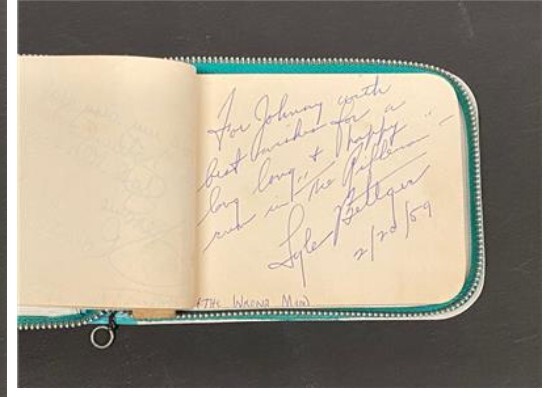 For Johnny with
best wishes for a
long long & happy
run in "The Rifleman" -
Lyle Bettger
2/20/59
"THE WRONG MAN